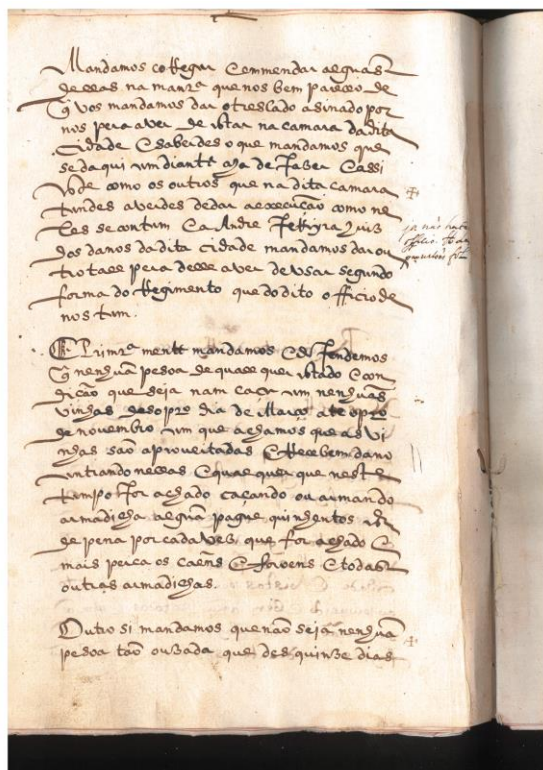 Mandamos correger Eemmendar alguãs
dellas na manrª que nos bem pareceo de
q̃ vos mandamos dar o treslado asinado por
nos pera aver de estar na camara da dita
Cidade Esaberdes o que mandamos que
se daqui em diante aja de fazer Eassi
como os outros que na dita camara
tendes averdes de dar aexecução como ne
les se contem Ea Andre Juiz
dos danos da dita cidade mandamos dar ou
tro tall pera delle aver de usar segundo
forma do Regimento que do dito officio de
nos tem.
ja não
officio
Primrª mente mandamos E defendemos
q̃ nenhuã pesoa de quall quer estado E con
dição que seja nam caçe em nenhuãs
vinhas des o prº dia de Março ate o prº
de novembro em que achamos que as vi
nhas são aproveitadas E Recebem dano
entrando nellas E qual quer que neste
tempo for achado caçando ou armando
armadilha alguã pague quinhentos rs
de pena por cada vez que for achado E
mais perca os caẽs E foroens E todas
outras armadilhas.
Outro si mandamos que não seja nenhuã
pesoa tão ouzada que des quinze dias